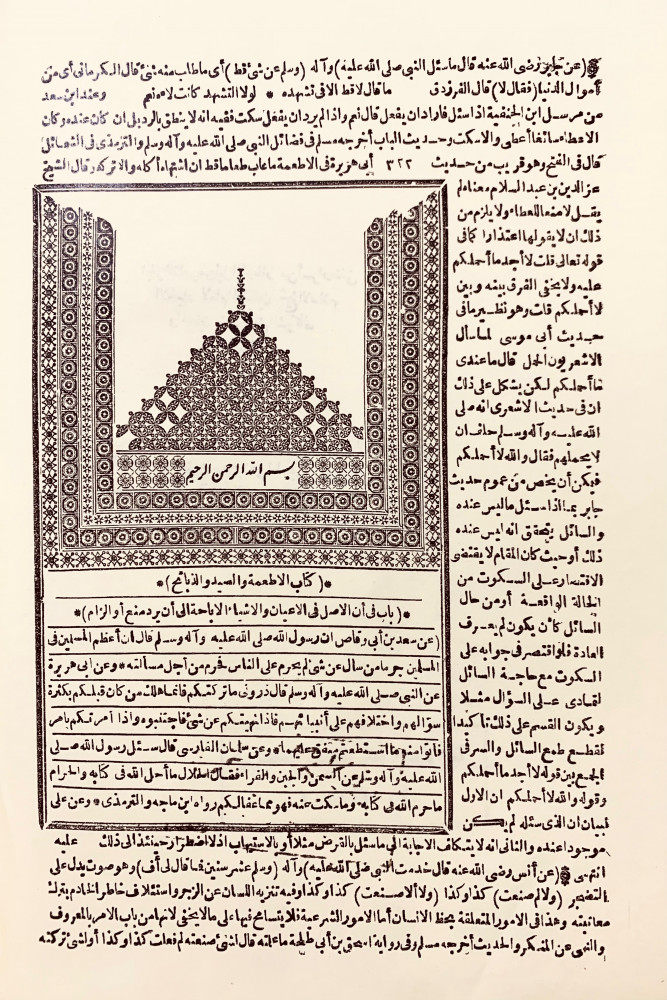 (عن جابر رضى الله عنه قال ماسئل النبى صلى الله عليه) وآله (وسلم عن شئ قط) أى ماطلب منه شئ قال الكرمانى أى من
أموال الدنيا (فقال لا) قال الفرزدق ماقال لاقط الافى تشهده * لولا التشهد كانت لاءه نعم وعند ابن سعد
من مرسل ابن الحنفية اذا سئل فاراد ان يفعل قال نعم واذا لم يرد ان يفعل سكت ففيه انه لا ينطق بالرد بل ان كان عنده وكان
الاعطاء سائغا أعطى والاسكت وحديث الباب أخرجه مسلم فى فضائل النبى صلى الله عليه وآله وسلم والترمذى فى الشمائل
قال فى الفتح وهو قريب من حديث ٣٢٢ أبى هريرة فى الاطعمة ماعاب طعاما قط ان اشتهاه أكله والا تركه وقال الشيخ
عز الدين بن عبد السلام معناه لم
يقل لا منعا للعطاء ولا يلزم من
ذلك ان لا يقولها اعتذارا كما فى
قوله تعالى قلت لا أجد ما أحملكم
عليه ولا يخفى الفرق بينه وبين
لا أحملكم قلت وهو نظير ما فى
حديث أبى موسى لما سأل
الاشعريون الحمل قال ما عندى
ما أحملكم لكن يشكل على ذلك
ان فى حديث الاشعرى انه صلى
الله عليه وآله وسلم حلف ان
لا يحملهم فقال والله لا أحملكم
فيمكن أن يخص من عموم حديث
جابر بما اذا سئل ما ليس عنده
والسائل يتحقق انه ليس عنده
ذلك أو حيث كان المقام لا يقتضى
الاقتصار على السكوت من
الحالة الواقعة أو من حال
السائل كأن يكون لم يعرف
العادة فلو اقتصر فى جوابه على
السكوت مع حاجة السائل
لتمادى على السؤال مثلا
ويكون القسم على ذلك تأكيدا
لقطع طمع السائل والسر فى
الجمع بين قوله لا أجد ما أحملكم
وقوله والله لا أحملكم ان الاول
لبيان ان الذى سئله لم يكن
بسم الله الرحمن الرحيم
*(كتاب الاطعمة والصيد والذبائح)*
*(باب فى أن الاصل فى الاعيان والاشياء الاباحة الى أن يرد منع أو الزام)*
(عن سعد بن أبى وقاص ان رسول الله صلى الله عليه وآله وسلم قال ان أعظم المسلمين فى
المسلمين جرما من سأل عن شئ لم يحرم على الناس فحرم من أجل مسألته * وعن ابى هريرة
عن النبى صلى الله عليه وآله وسلم قال ذرونى ما تركتكم فانما هلك من كان قبلكم بكثرة
سؤالهم واختلافهم على أنبيائهم فاذا نهيتكم عن شئ فاجتنبوه واذا أمرتكم بأمر
فأتوا منه ما استطعتم متفق عليهما * وعن سلمان الفارسى قال سئل رسول الله صلى
الله عليه وآله وسلم عن السمن والجبن والفراء فقال الحلال ما أحل الله فى كتابه والحرام
ما حرم الله فى كتابه وما سكت عنه فهو مما عفا لكم رواه ابن ماجه والترمذى * وعن على
موجودا عنده والثانى انه لا يتكلف الاجابة الى ما سئل بالقرض مثلا أو بالاستيهاب اذ لا اضطرار حينئذ الى ذلك عليه
انتهى (عن أنس رضى الله عنه قال خدمت النبى صلى الله عليه) وآله (وسلم عشر سنين فما قال لى أف) وهو صوت يدل على
التضجر (ولا لم صنعت) كذا وكذا (ولا ألا صنعت) كذا وكذا وفيه تنزيه اللسان عن الزجر واستئلاف خاطر الخادم بترك
معاتبته وهذا فى الامور المتعلقة بحظ الانسان أما الامور الشرعية فلا يتسامح فيها على ما لا يخفى لانها من باب الامر بالمعروف
والنهى عن المنكر والحديث أخرجه مسلم وفى رواية اسحق بن أبى طلحة ما علمته قال لشئ صنعته لم فعلت كذا وكذا أو لشئ تركته